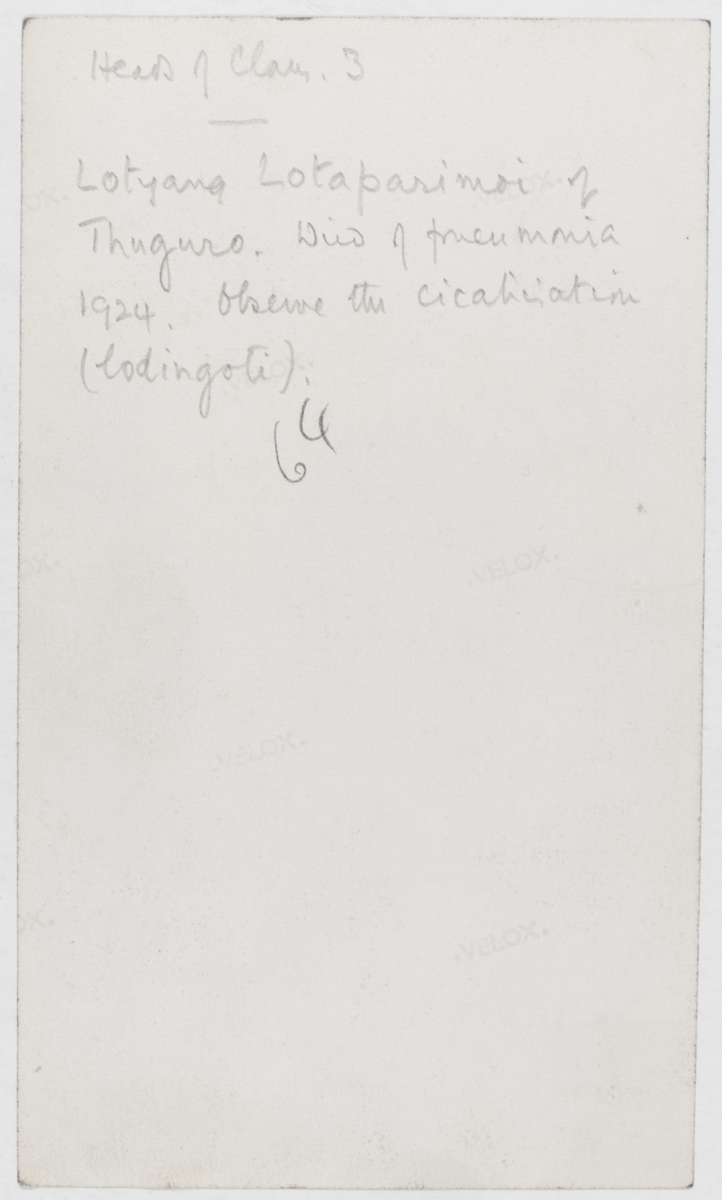 Heads of Clans. 3
Lotyang Lotaparimoi of
Thuguro. Died of pneumonia
1924. Observe the cicatrisation
(lodingoti).
64
.VELOX.
.VELOX.
.VELOX.